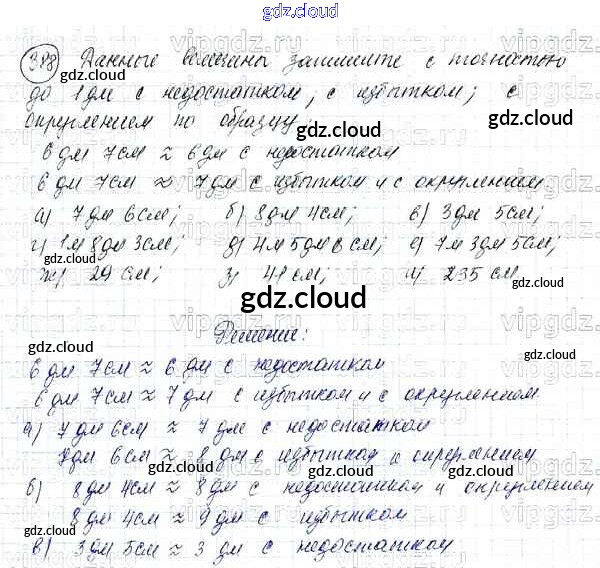 gdz.cloud
388 Данные величины запишите с точностью
gdz.cloud
до 1 дм с недостатком, с избытком; с
gdz.cloud
округлением по образцу:
gdz.cloud
6 дм 7см ≈ 6 дм с недостатком
6 дм 7см ≈ 7 дм с избытком и с округлением.
gdz.cloud
а) 7 дм 6см; б) 8 дм 4см; в) 3 дм 5см;
г) 1м 8дм 3см; д) 4м 5дм 6 см; е) 7м 3дм 5см;
ж) 29 см; з) 41 см; и) 235 см.
gdz.cloud
gdz.cloud
Решение:
gdz.cloud
6 дм 7см ≈ 6 дм с недостатком
6 дм 7см ≈ 7 дм с избытком и с округлением
gdz.cloud
а) 7 дм 6см ≈ 7 дм с недостатком
7дм 6см ≈ 8 дм с избытком и округлением
gdz.cloud
б) 8 дм 4см ≈ 8 дм с недостатком и округлением
8 дм 4см ≈ 9 дм с избытком
gdz.cloud
gdz.cloud
в) 3 дм 5см ≈ 3 дм с недостатком